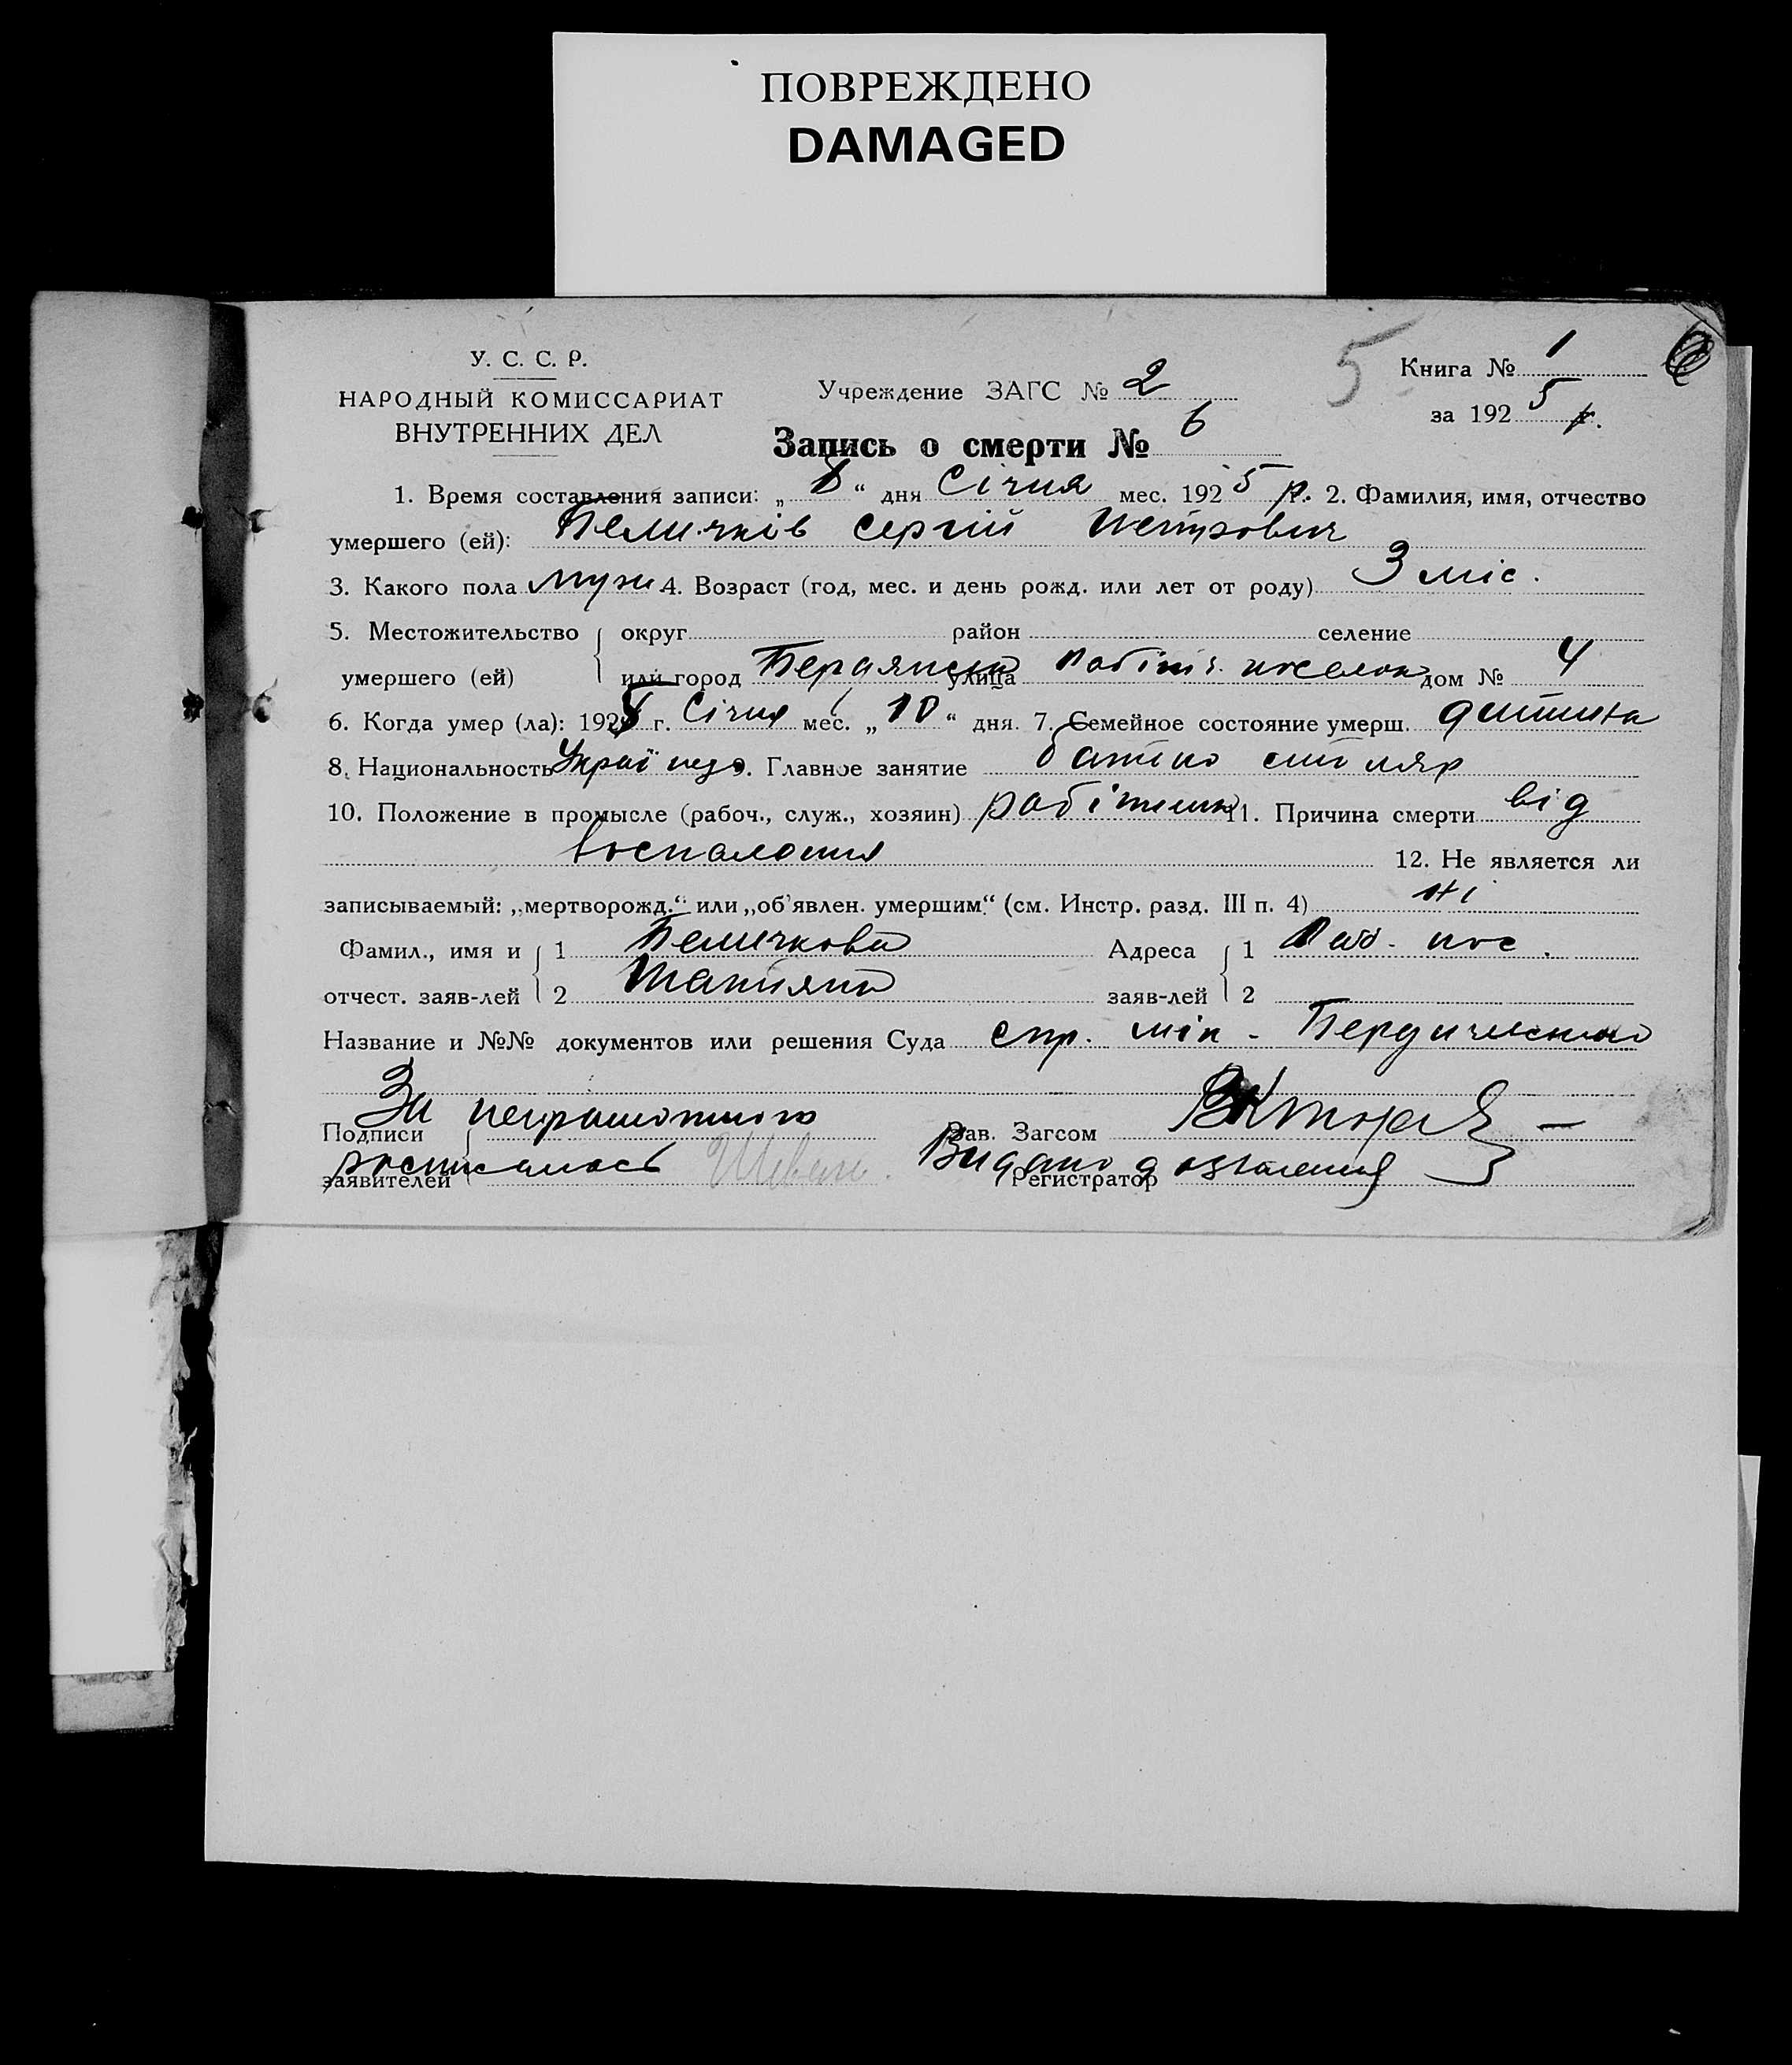 ПОВРЕЖДЕНО
DAMAGED
У. С. С. Р.
НАРОДНЫЙ КОМИССАРИАТ
ВНУТРЕННИХ ДЕЛ
Учреждение ЗАГС № 2
5
Книга № 1
за 1925 р.
Запись о смерти № 6
1. Время составления записи: „ 8 “ дня Січня мес. 1925 р. 2. Фамилия, имя, отчество
умершего (ей): Беличків Сергій Петрович
3. Какого пола муж 4. Возраст (год, мес. и день рожд. или лет от роду) 3 міс.
5. Местожительство округ район селение
умершего (ей) или город Бердянськ улица Робітч. поселок дом № 4
6. Когда умер (ла): 1925 г. Січня мес. „ 10 “ дня. 7. Семейное состояние умерш. дитина
8. Национальность Украінец 9. Главное занятие батько столяр
10. Положение в промысле (рабоч., служ., хозяин) робітник 11. Причина смерти від
воспаления 12. Не является ли
записываемый: „мертворожд.“ или „об'явлен. умершим“ (см. Инстр. разд. III п. 4) ні
Фамил., имя и 1 Беличкова Адреса 1 Раб. пос.
отчест. заяв-лей 2 Татяна заяв-лей 2
Название и №№ документов или решения Суда спр. лік.
За неграмотного
Подписи Зав. Загсом
росписалась
заявителей Видано Регистратор